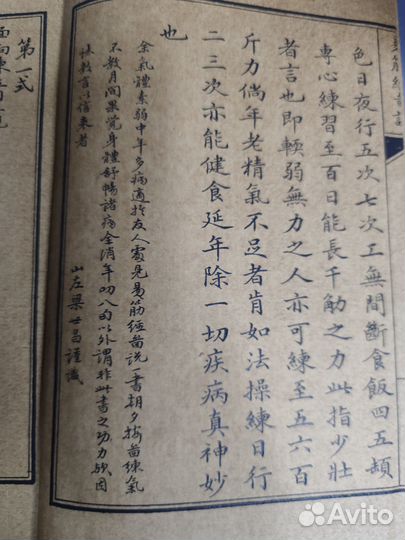 色日夜行五次七次工無間斷食飯四五
專心練習至百日能長千觔之力此指少壯
者言也即輭弱無力之人亦可練至五六百
斤力倘年老精氣不足者肯如法操練日行
二三次亦能健食延年除一切疾病真神妙
也
余氣體素弱中年多病適於友人處見易筋經啚说一書朝夕按啚練氣
不數月間果覺身體舒暢諸病全消年叨八旬以外謂非此書之功力歟因
數言以信來者
山左梁士昌謹識
第一式
面向東立
Avito